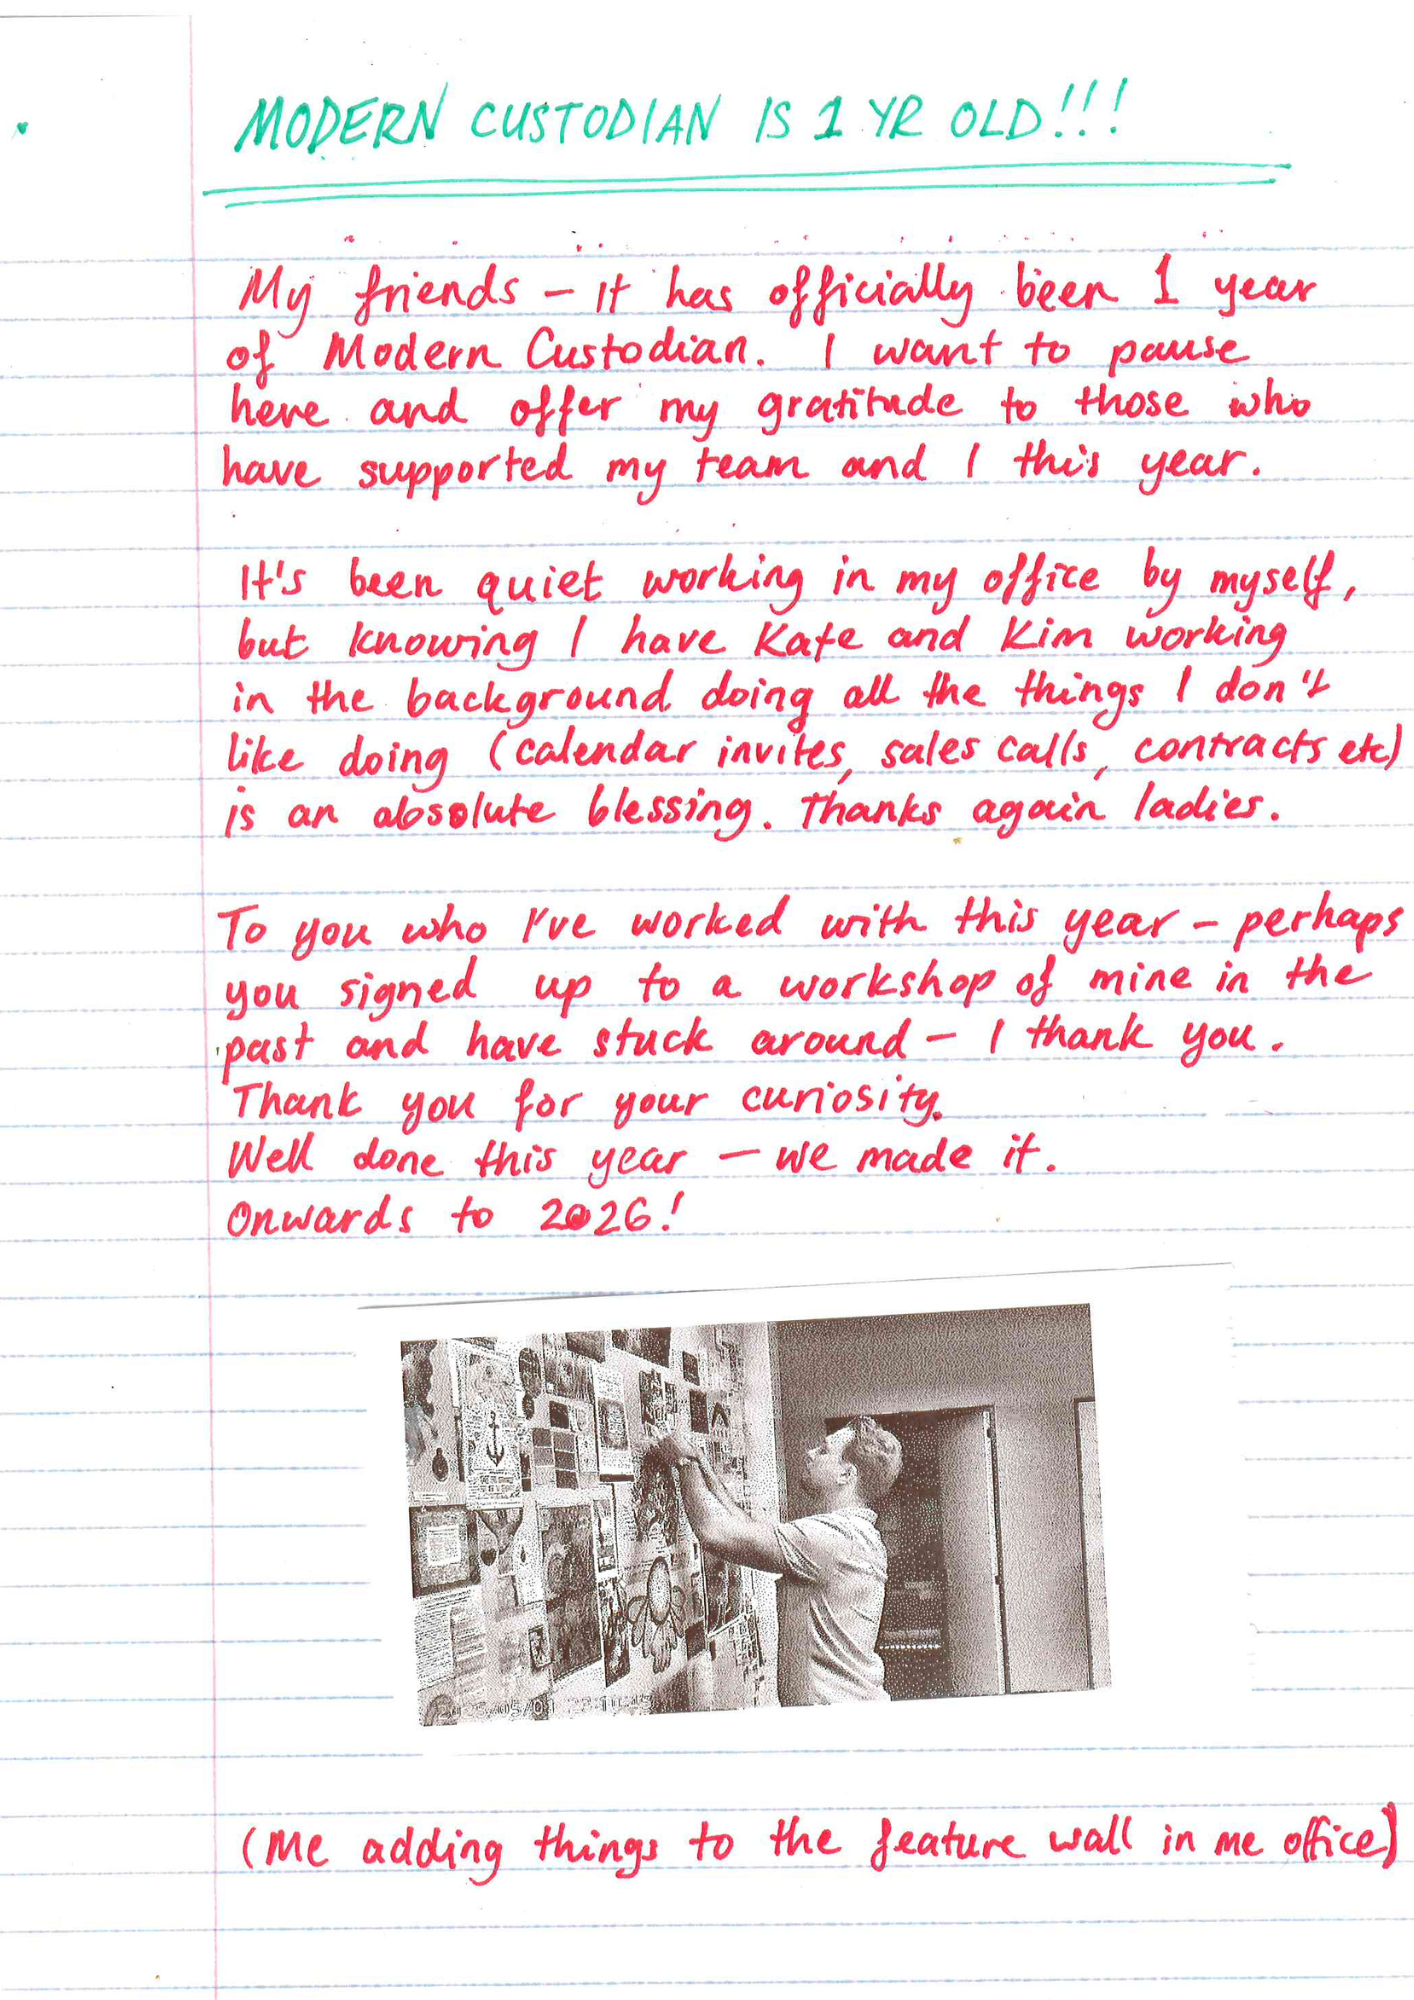 MODERN CUSTODIAN IS 1 YR OLD!!!
My friends – it has officially been 1 year
of Modern Custodian. I want to pause
here and offer my gratitude to those who
have supported my team and I this year.
It's been quiet working in my office by myself,
but knowing I have Kate and Kim working
in the background doing all the things I don't
like doing (calendar invites, sales calls, contracts etc)
is an absolute blessing. Thanks again ladies.
To you who I've worked with this year – perhaps
you signed up to a workshop of mine in the
past and have stuck around – I thank you.
Thank you for your curiosity.
Well done this year – we made it.
Onwards to 2026!
(Me adding things to the feature wall in me office)